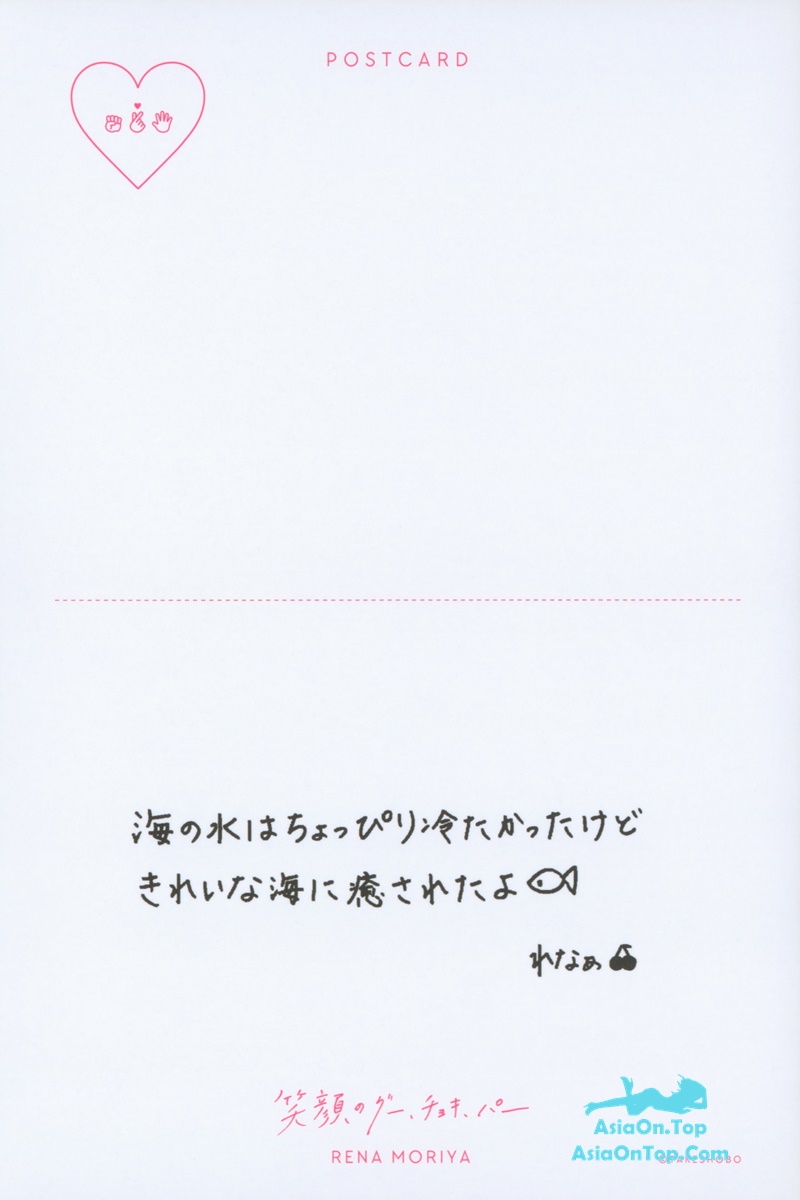 POSTCARD
海の水はちょっぴり冷たかったけど
きれいな海に癒されたよ
れなぁ
笑顔のグー、チョキ、パー
RENA MORIYA
AsiaOn.Top
AsiaOnTop.Com